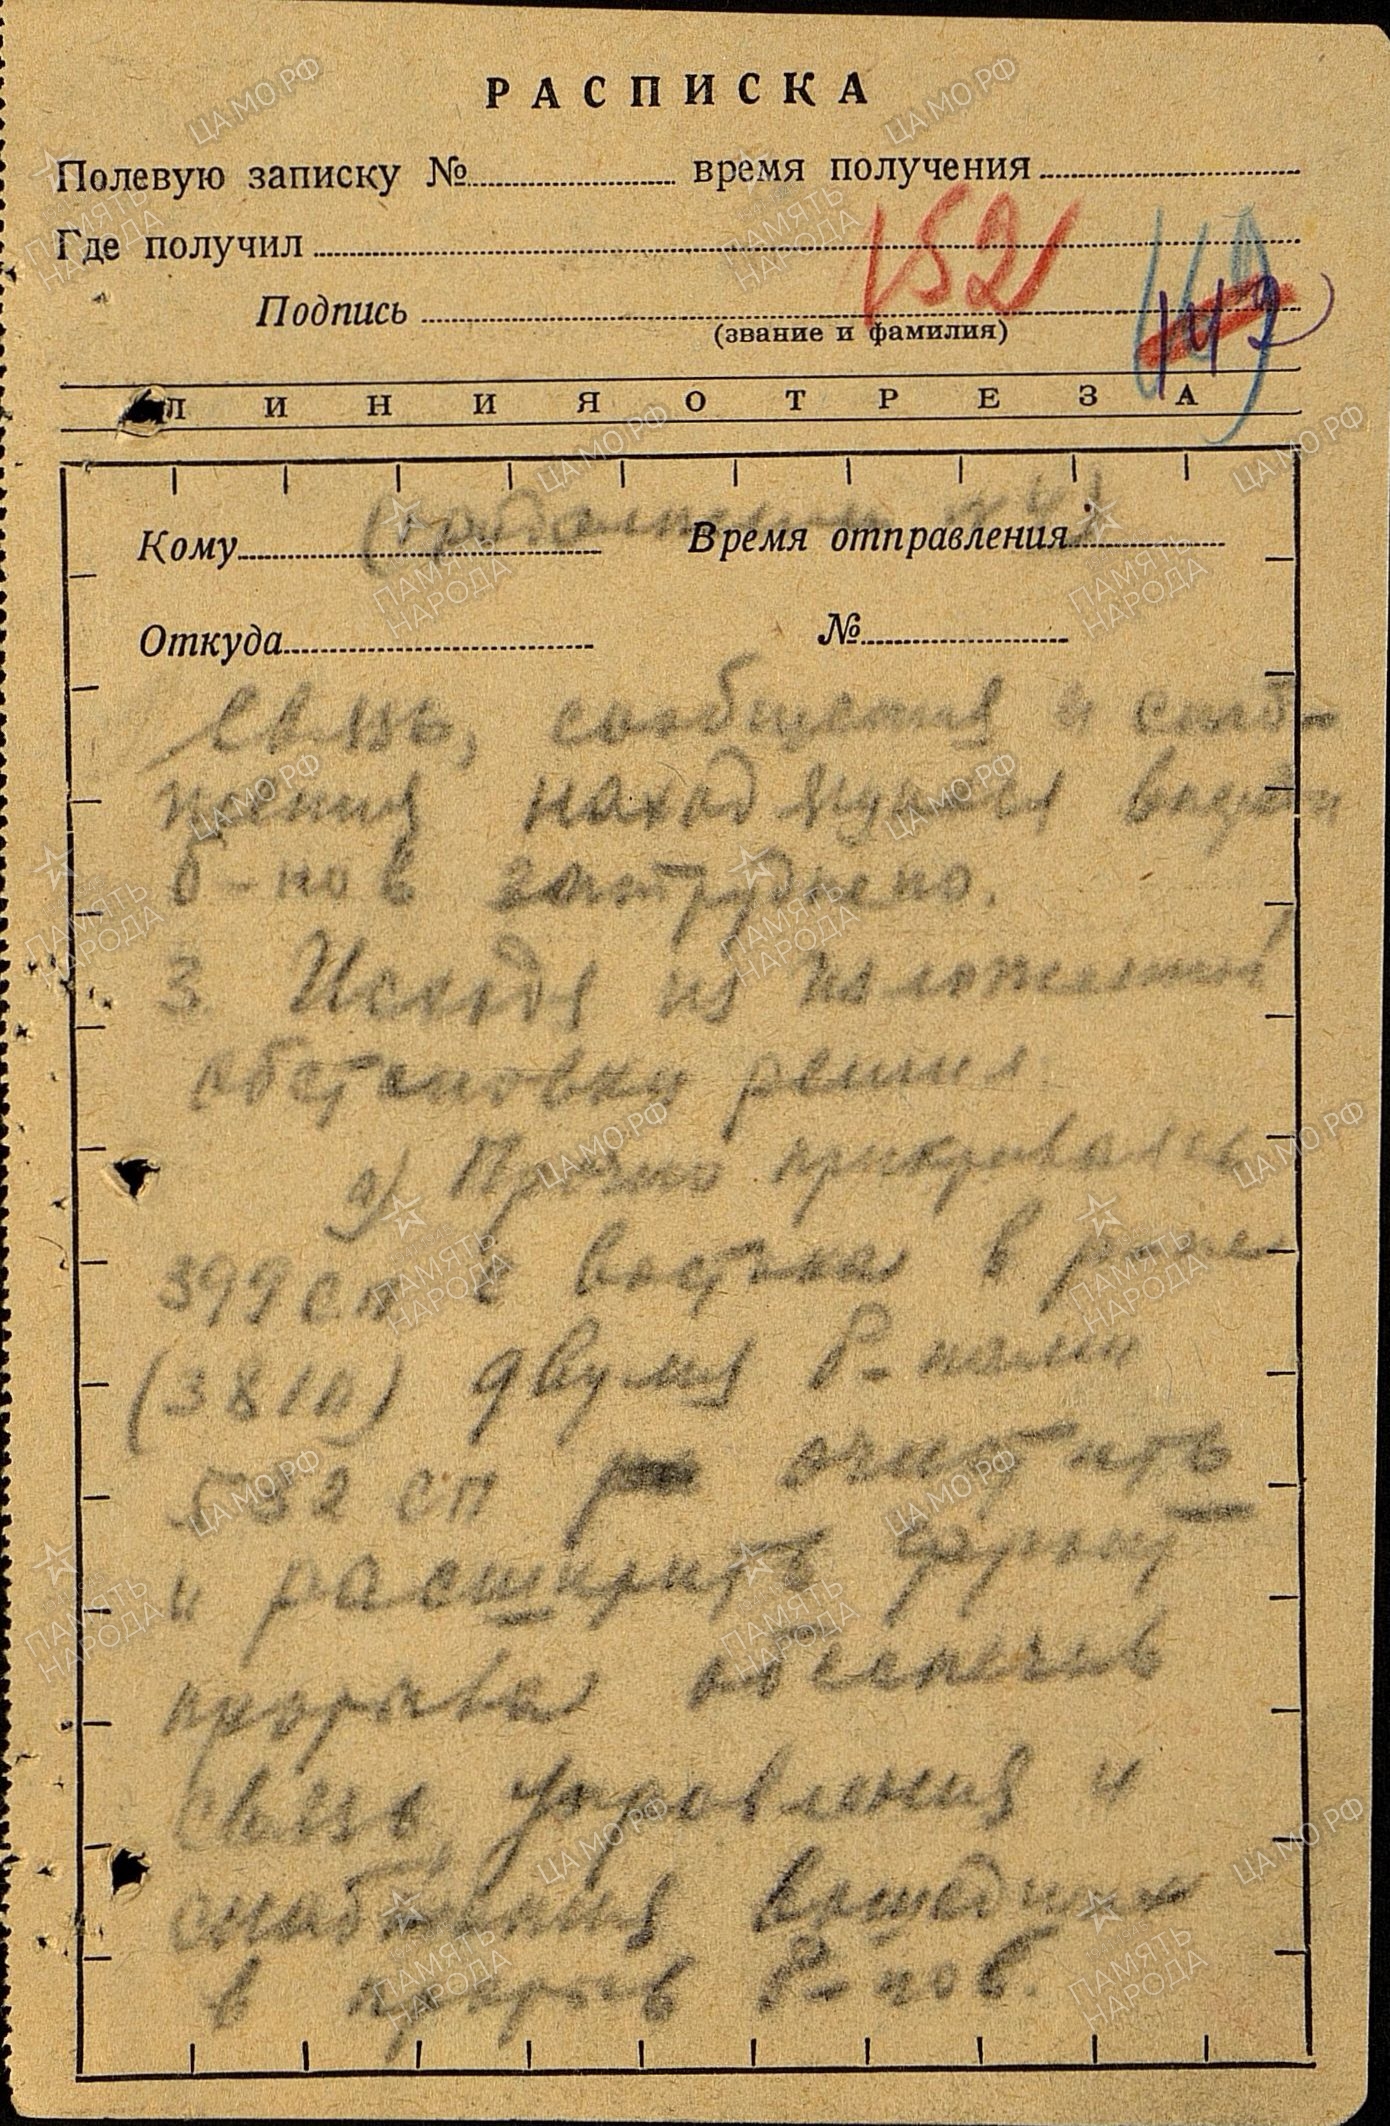 РАСПИСКА
Полевую записку № время получения
Где получил
152
149
147
Подпись
(звание и фамилия)
ЛИНИЯ ОТРЕЗА
(продолжение № 4)
Кому Время отправления
Откуда №
связь, сообщения и снаб-
жения находящихся
б-нов затруднено.
3. Исходя из изложенной
обстановки решил
а) Прочно прикрываясь
399 сп с востока в роще
(381А) двумя б-нами
532 сп очистить
и расширить фронт
прорыва обеспечив
связь, управления и
снабжения вошедших
в прорыв б-нов.
ЦАМО.РФ
ПАМЯТЬ НАРОДА